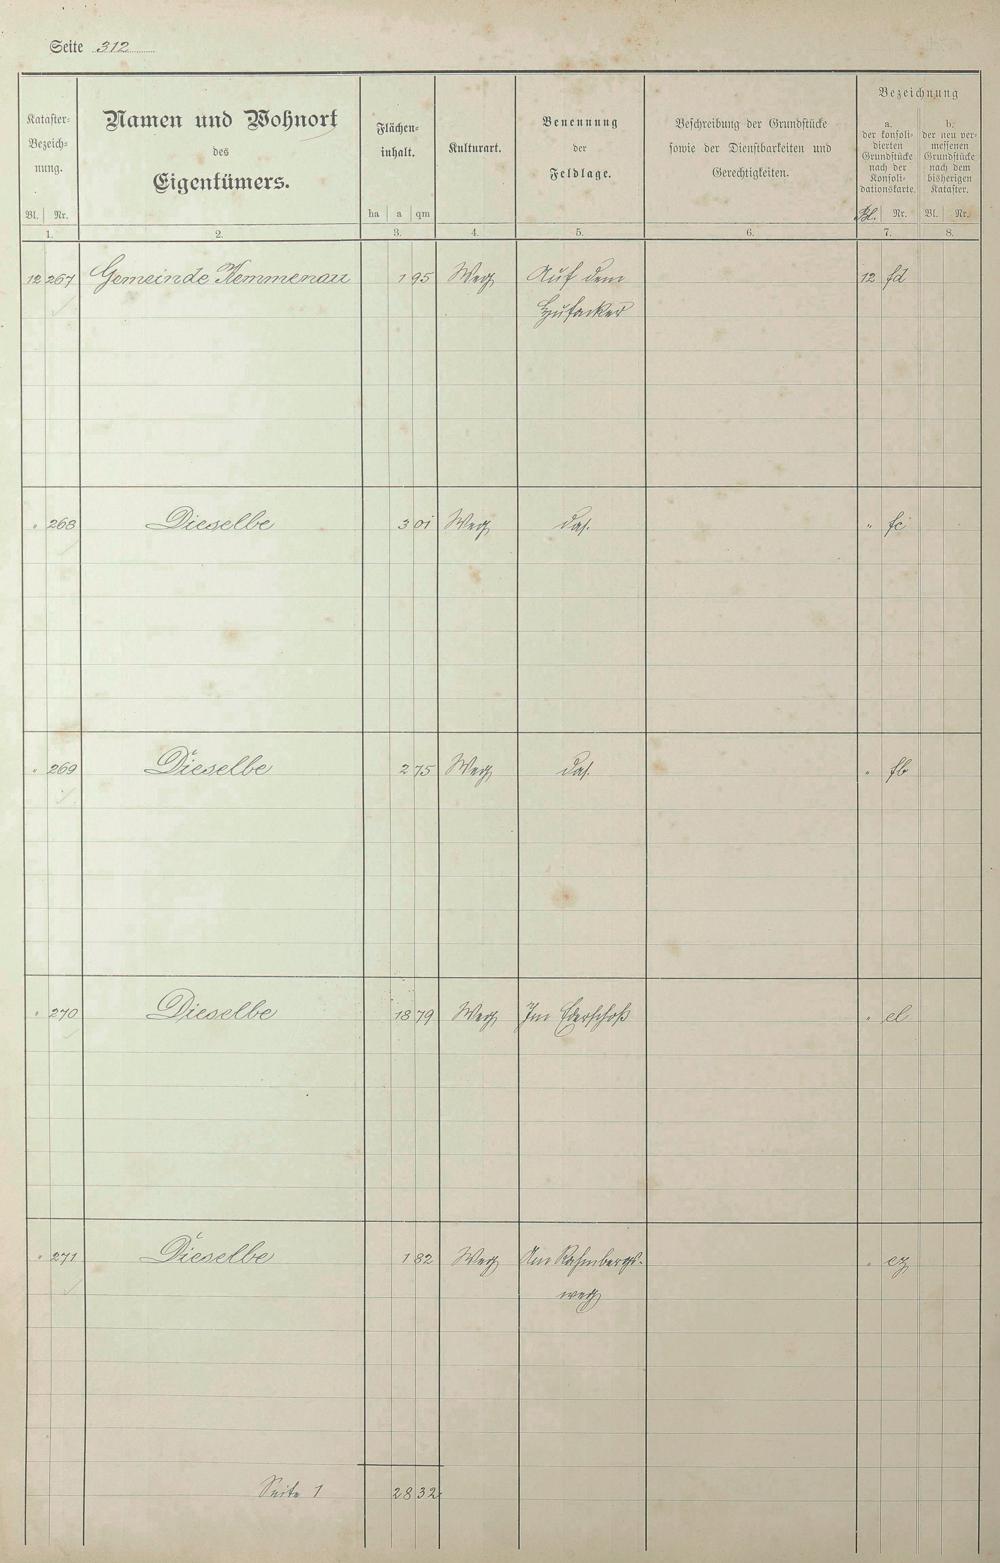 Seite 312
Kataster-
Bezeich-
nung.
Bl. Nr.
Namen und Wohnort
des
Eigentümers.
Flächen-
inhalt.
ha a qm
Kulturart.
Benennung
der
Feldlage.
Beschreibung der Grundstücke
sowie der Dienstbarkeiten und
Gerechtigkeiten.
Bezeichnung
a.
der konsoli-
dierten
Grundstücke
nach der
Konsoli-
dationskarte.
Bl. Nr.
b.
der neu ver-
messenen
Grundstücke
nach dem
bisherigen
Kataster.
Bl. Nr.
1. 2. 3. 4. 5. 6. 7. 8.
12 267 Gemeinde Kemmenau 1 95 Weg Auf dem 12 fd
Hufacker
" 268 Dieselbe 3 01 Weg das. " fc
" 269 Dieselbe 2 75 Weg das. " fb
" 270 Dieselbe 18 79 Weg Im " el
" 271 Dieselbe 1 82 Weg Am " ez
weg
Seite 1 28 32